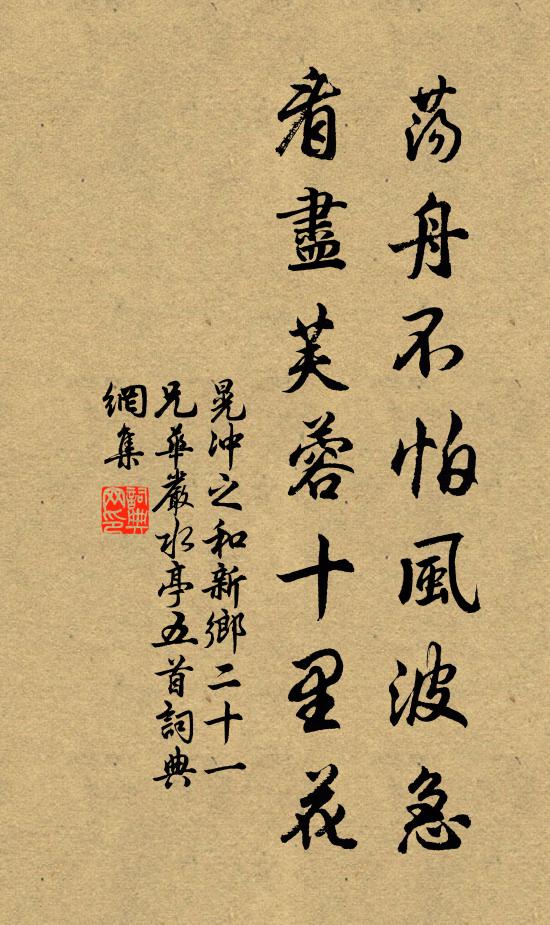 荡舟不怕風波急
看盡芙蓉十里花
晁沖之和新鄉二十一
兄華嚴水亭五首詞典
網集
詞典
网印